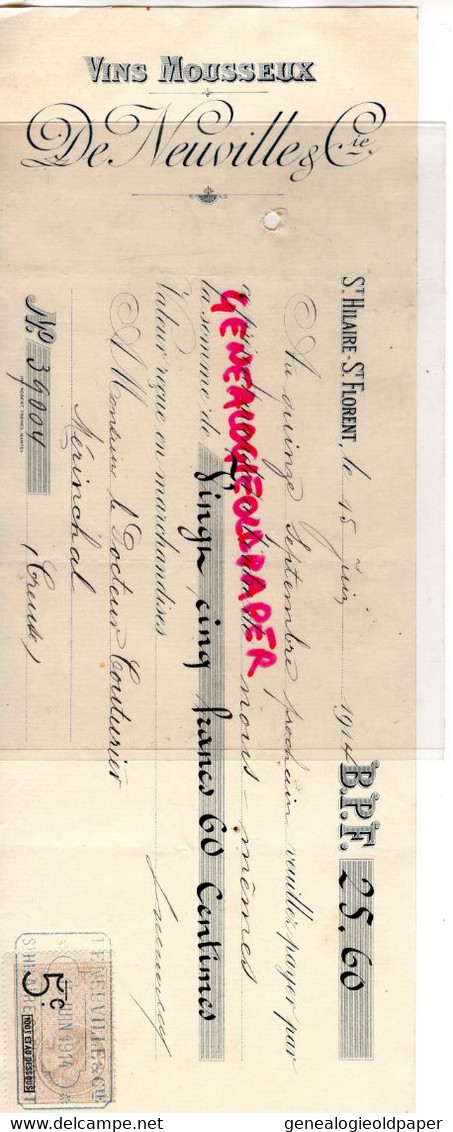 VINS MOUSSEUX
De Neuville & Cie
ST HILAIRE-ST FLORENT, le 15 Juin 1914 B.P.F. 25.60
Au quinze Septembre prochain veuillez payer par
nous-mêmes
la somme de Vingt cinq francs 60 Centimes
Valeur reçue en marchandises
A Monsieur le Docteur Couturier
Mérinchal
(Creuse)
No 39004
GENEALOGIEOLDPAPER
DE NEUVILLE & CIE
JUIN 1914
5c.
100F ET AU DESSOUS
delcampe.net
genealogieoldpaper